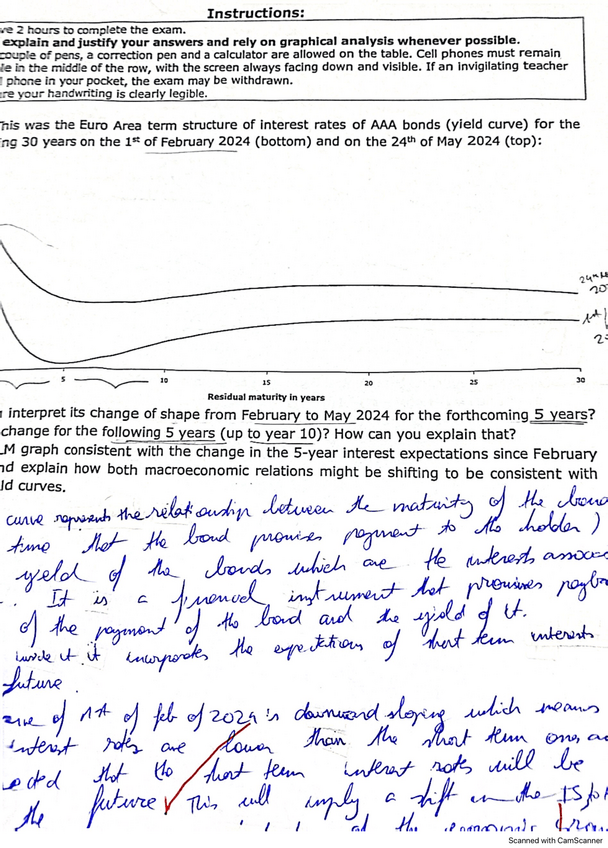 Instructions:
ve 2 hours to complete the exam.
explain and justify your answers and rely on graphical analysis whenever possible.
couple of pens, a correction pen and a calculator are allowed on the table. Cell phones must remain
le in the middle of the row, with the screen always facing down and visible. If an invigilating teacher
phone in your pocket, the exam may be withdrawn.
re your handwriting is clearly legible.
This was the Euro Area term structure of interest rates of AAA bonds (yield curve) for the
ng 30 years on the 1st of February 2024 (bottom) and on the 24th of May 2024 (top):
5 10 15 20 25 30
Residual maturity in years
interpret its change of shape from February to May 2024 for the forthcoming 5 years?
change for the following 5 years (up to year 10)? How can you explain that?
LM graph consistent with the change in the 5-year interest expectations since February
nd explain how both macroeconomic relations might be shifting to be consistent with
ld curves.
curve represents the relationship between the maturity of the bond
time that the bond promises payment to the holder)
yield of the bonds which are the interests assoc
. It is a financial instrument that promises payb
of the payment of the bond and the yield of it.
it incorporates the expectations of short term interests
future.
of 1st of feb of 2024 is downward sloping which means
interest rates are lower than the short term ones an
cted that the short term interest rates will be
the future This will imply a shift in the IS
of the economic
Scanned with CamScanner